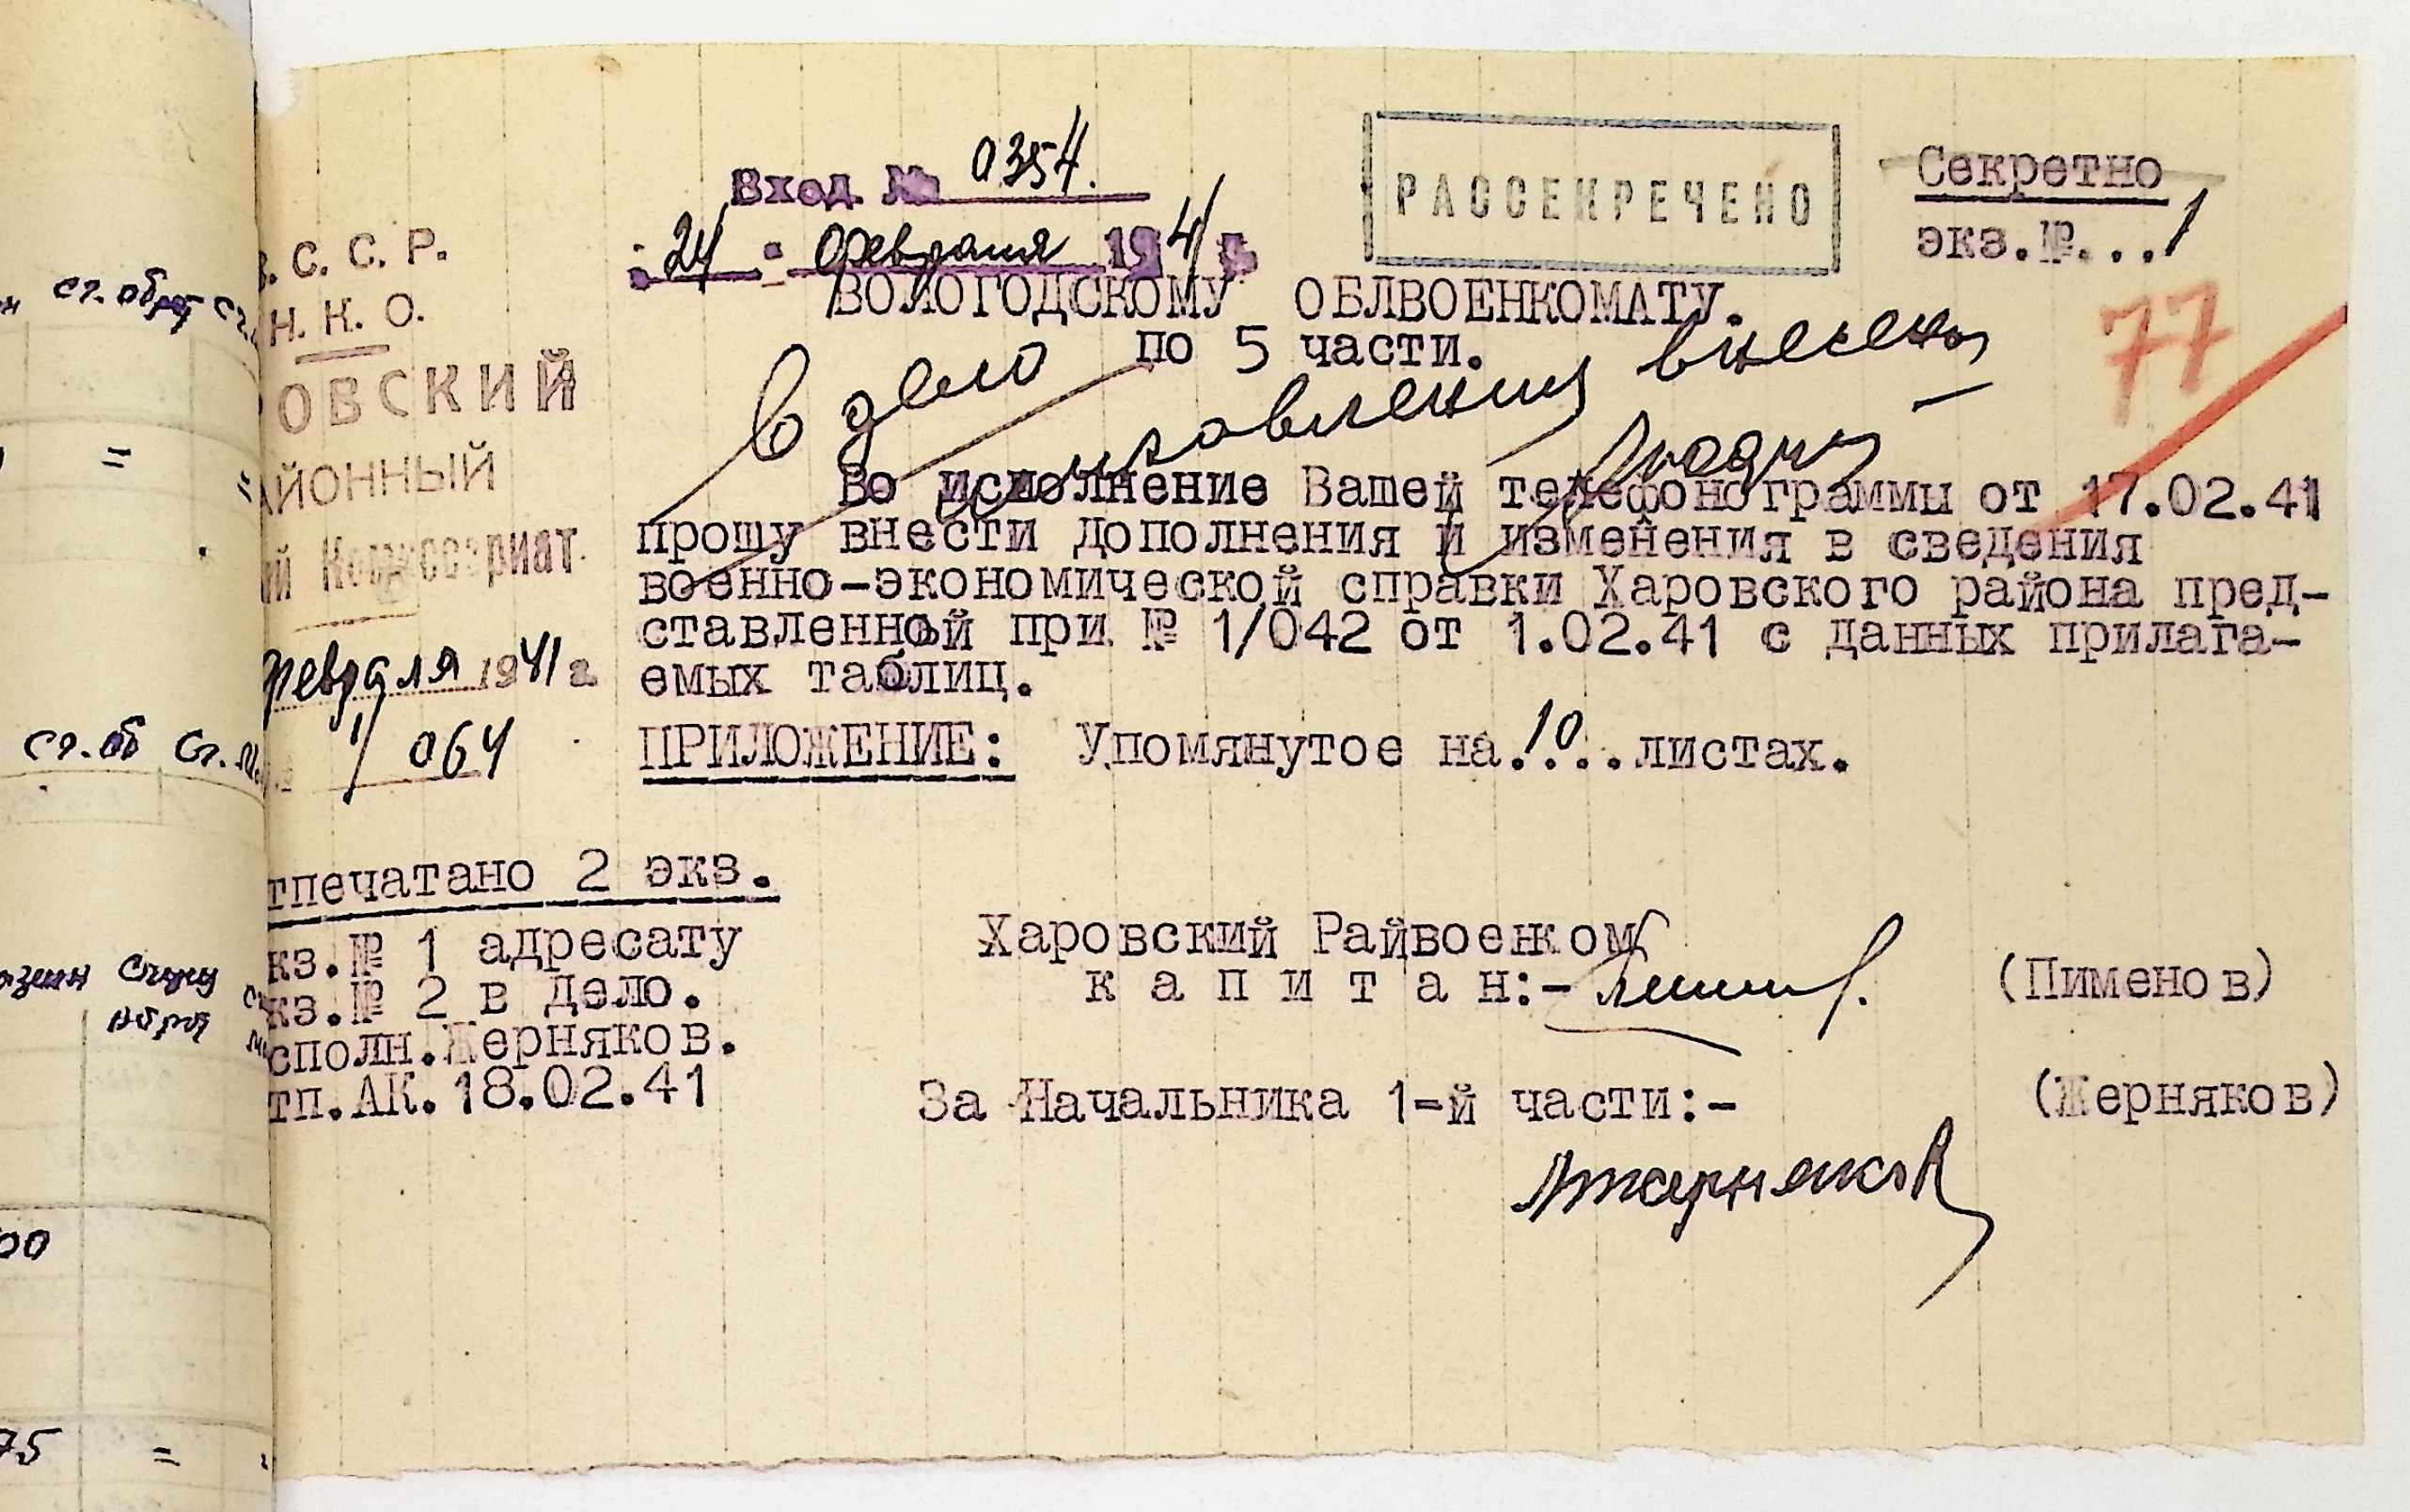 Вход. № 0354.
"24" февраля 1941 г.
РАССЕКРЕЧЕНО
Секретно
экз.№...1
77
. С. С. Р.
Н. К. О.
ОВСКИЙ
АЙОННЫЙ
ий Комиссариат
февраля 1941 г.
1/064
ВОЛОГОДСКОМУ ОБЛВОЕНКОМАТУ.
по 5 части.
В дело
внесены
Во исполнение Вашей телефонограммы от 17.02.41
прошу внести дополнения и изменения в сведения
военно-экономической справки Харовского района пред-
ставленной при № 1/042 от 1.02.41 с данных прилага-
емых таблиц.
ПРИЛОЖЕНИЕ: Упомянутое на.10..листах.
тпечатано 2 экз.
кз.№ 1 адресату
кз.№ 2 в дело.
сполн.Жерняков.
тп.АК.18.02.41
Харовский Райвоенком
к а п и т а н:- (Пименов)
За Начальника 1-й части:- (Жерняков)
ст. обр
=
ст. об ст. м.
00
75 =